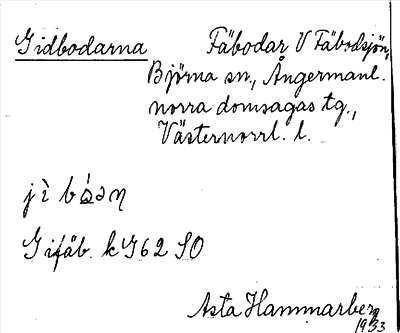 Gidbodarna Fäbodar V Fäbodsjön,
Björna sn, Ångermanl.
norra domsagas tg.,
Västernorrl. l.
jì bɷ́ən
Gifäb. k 762 SO
Asta Hammarberg
1933